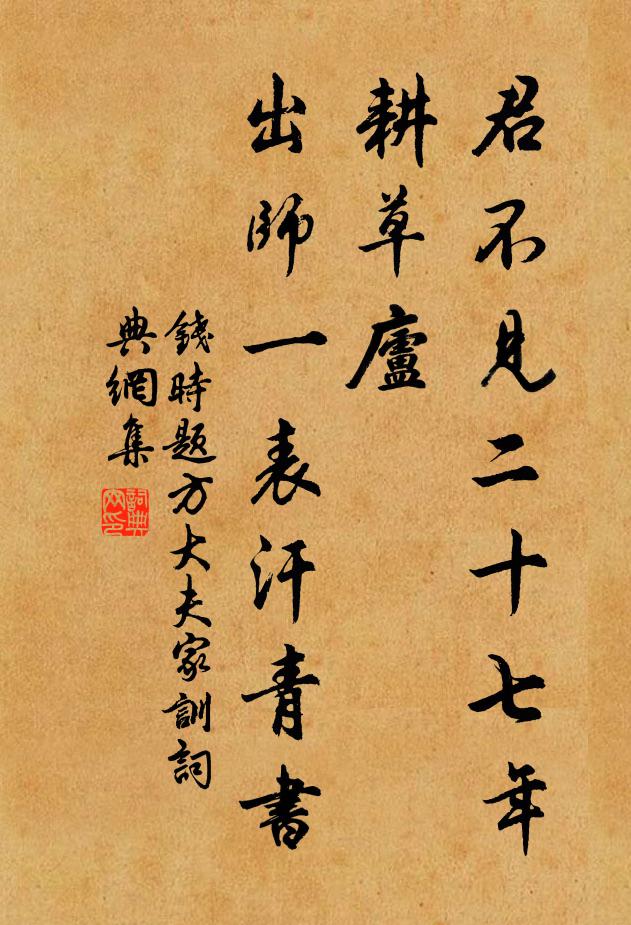 君不見二十七年
耕草廬
出師一表汗青書
錢時題方大夫家訓詞
典網集
詞典
网印